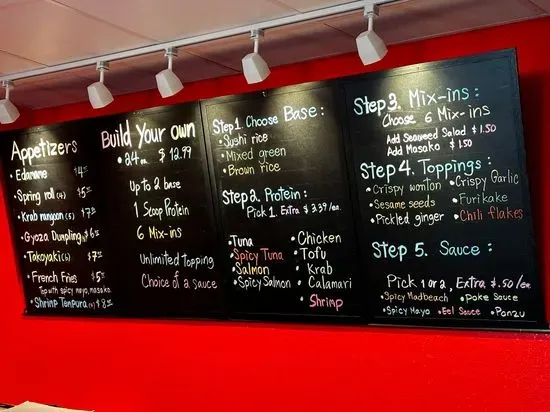 Appetizers
• Edamame $4
• Spring roll (4) $5
• Krab rangoon (5) $7
• Gyoza Dumpling (6) $6
• Takoyaki (6) $7
• French Fries $5
Top with spicy mayo, masako.
• Shrimp Tempura (4) $8
Build Your own
• 24 oz $12.99
Up to 2 base
1 Scoop Protein
6 Mix-ins
Unlimited topping
Choice of a sauce
Step 1. Choose Base :
• Sushi rice
• Mixed green
• Brown rice
Step 2. Protein :
Pick 1. Extra $3.39/ea.
• Tuna
• Spicy Tuna
• Salmon
• Spicy Salmon
• Chicken
• Tofu
• Krab
• Calamari
• Shrimp
Step 3. Mix-ins :
Choose 6 Mix-ins
Add Seaweed Salad $1.50
Add Masako $1.50
Step 4. Toppings :
• Crispy wonton
• Sesame seeds
• Pickled ginger
• Crispy Garlic
• Furikake
• Chili flakes
Step 5. Sauce :
Pick 1 or 2, Extra $.50/ea
• Spicy Madbeach • Poke Sauce
• Spicy Mayo • Eel Sauce • Ponzu